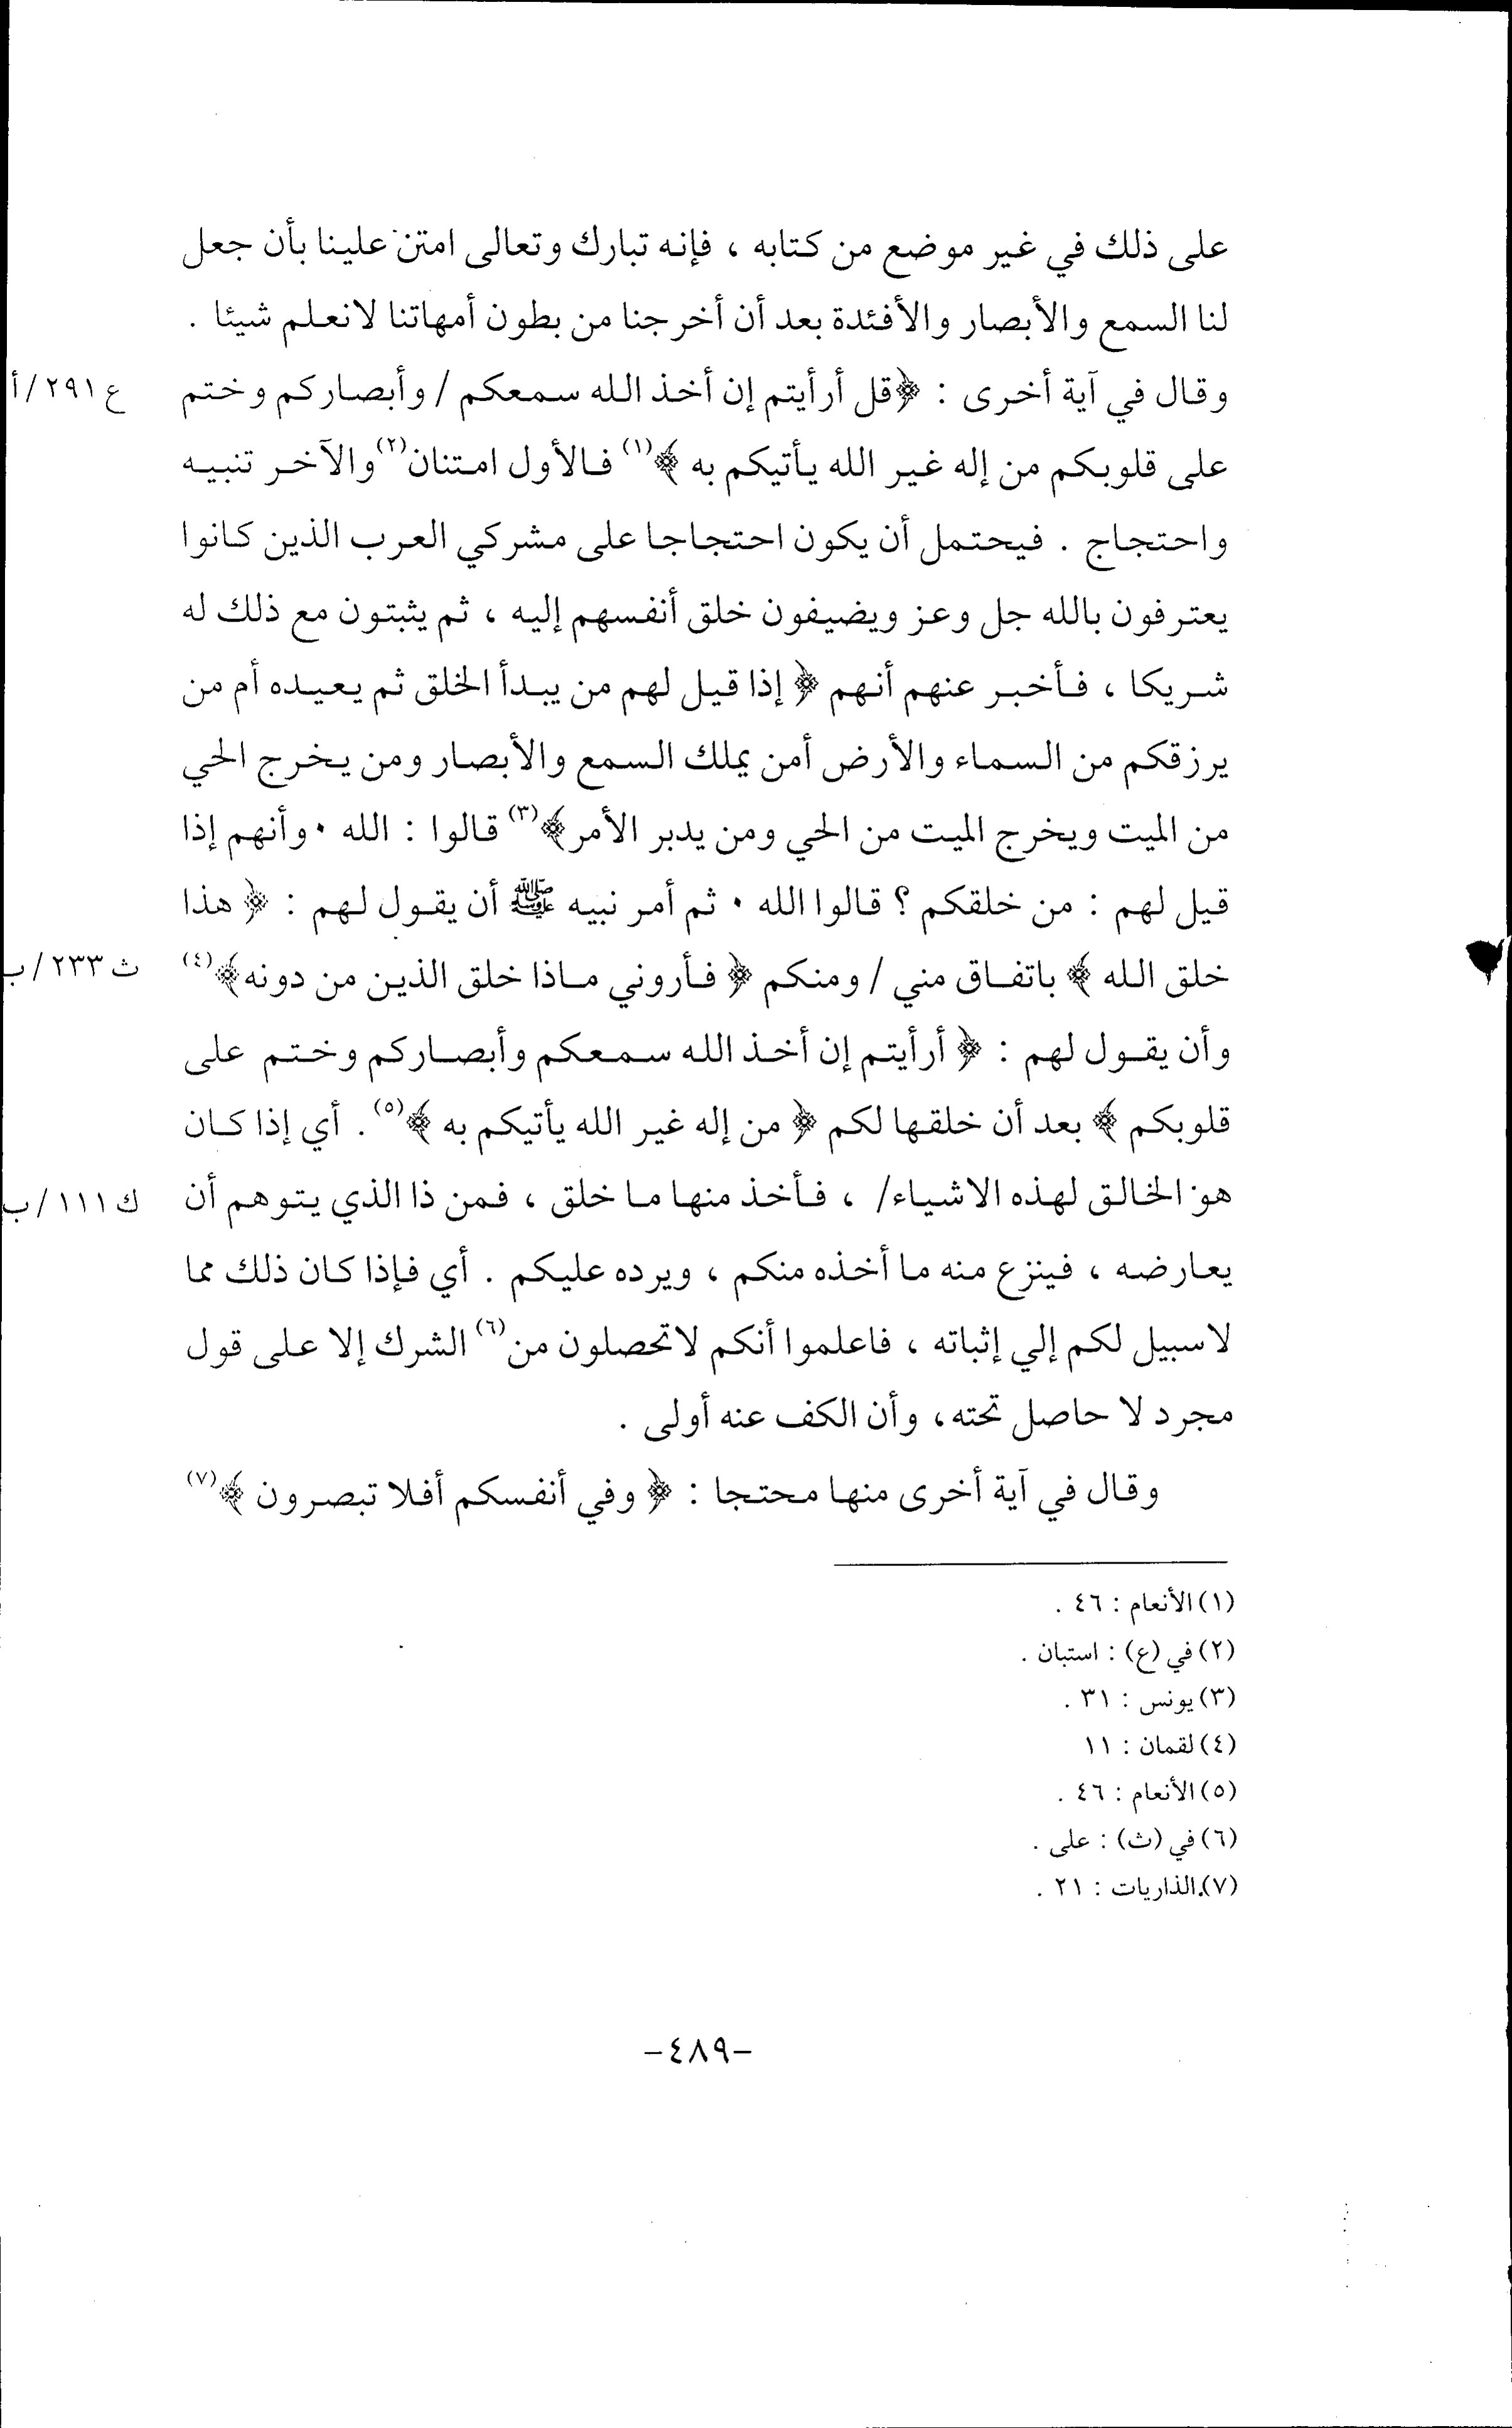 على ذلك في غير موضع من كتابه ، فإنه تبارك وتعالى امتن علينا بأن جعل
لنا السمع والأبصار والأفئدة بعد أن أخرجنا من بطون أمهاتنا لانعلم شيئا .
وقال في آية أخرى : ﴿قل أرأيتم إن أخذ الله سمعكم / وأبصاركم وختم
ع ٢٩١ / أ
على قلوبكم من إله غير الله يأتيكم به ﴾(١) فالأول امتنان(٢) والآخر تنبيه
واحتجاج . فيحتمل أن يكون احتجاجا على مشركي العرب الذين كانوا
يعترفون بالله جل وعز ويضيفون خلق أنفسهم إليه ، ثم يثبتون مع ذلك له
شريكا ، فأخبر عنهم أنهم ﴿ إذا قيل لهم من يبدأ الخلق ثم يعيده أم من
يرزقكم من السماء والأرض أمن يملك السمع والأبصار ومن يخرج الحي
من الميت ويخرج الميت من الحي ومن يدبر الأمر﴾(٣) قالوا : الله . وأنهم إذا
قيل لهم : من خلقكم ؟ قالوا الله . ثم أمر نبيه ﷺ أن يقول لهم : ﴿ هذا
خلق الله ﴾ باتفاق مني / ومنكم ﴿ فأروني ماذا خلق الذين من دونه﴾(٤)
ث ٢٣٣ / ب
وأن يقول لهم : ﴿ أرأيتم إن أخذ الله سمعكم وأبصاركم وختم على
قلوبكم ﴾ بعد أن خلقها لكم ﴿ من إله غير الله يأتيكم به ﴾(٥) . أي إذا كان
هو الخالق لهذه الاشياء/ ، فأخذ منها ما خلق ، فمن ذا الذي يتوهم أن
ك ١١١ / ب
يعارضه ، فينزع منه ما أخذه منكم ، ويرده عليكم . أي فإذا كان ذلك مما
لاسبيل لكم إلي إثباته ، فاعلموا أنكم لاتحصلون من(٦) الشرك إلا على قول
مجرد لا حاصل تحته، وأن الكف عنه أولى .
وقال في آية أخرى منها محتجا : ﴿ وفي أنفسكم أفلا تبصرون ﴾(٧)
(١) الأنعام : ٤٦ .
(٢) في (ع) : استبان .
(٣) يونس : ٣١ .
(٤) لقمان : ١١
(٥) الأنعام : ٤٦ .
(٦) في (ث) : على .
(٧) الذاريات : ٢١ .
-٤٨٩-